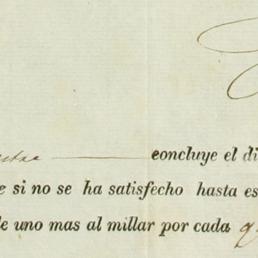 concluye el di
e si no se ha satisfecho hasta es
le uno mas al millar por cada